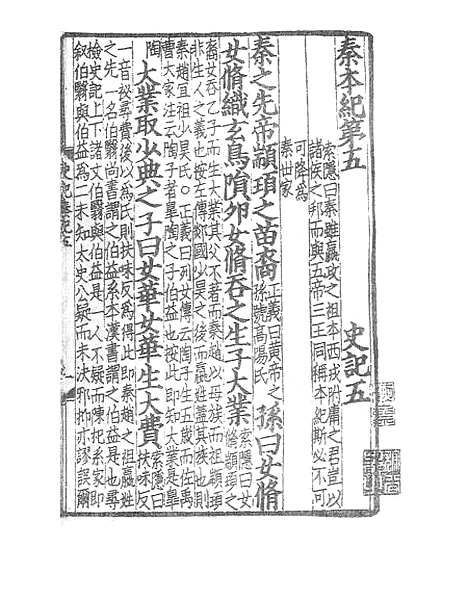 秦本紀第五 史記五
索隱曰秦雖嬴政之祖本西戎附庸之君豈以
諸侯之邦而與五帝三王同稱本紀斯必不可
可降為
秦世家
秦之先帝顓頊之苗裔 正義曰黃帝之
孫號高陽氏 孫曰女脩
女脩織玄鳥隕卵女脩吞之生子大業 索隱曰女
脩顓頊之
裔女吞乙子而生大業其父不著而秦趙以母族而祖顓頊
非生人之義也按左傳郯國少昊之後而嬴姓蓋其族也則
秦趙宜祖少昊氏○正義曰列女傳云陶子生五歲而佐禹
曹大家注云陶子者皐陶之子伯益也按此即知大業是皐
陶
大業取少典之子曰女華女華生大費 索隱曰
扶味反
一音祕尋費後以為氏則扶味反為得此即秦趙之祖嬴姓
之先一名伯翳尚書謂之伯益系本漢書謂之伯益是也尋
檢史記上下諸文伯翳與伯益是一人不疑而陳杞系家即
叙伯翳與伯益為二未知太史公疑而未決邪抑亦謬誤爾